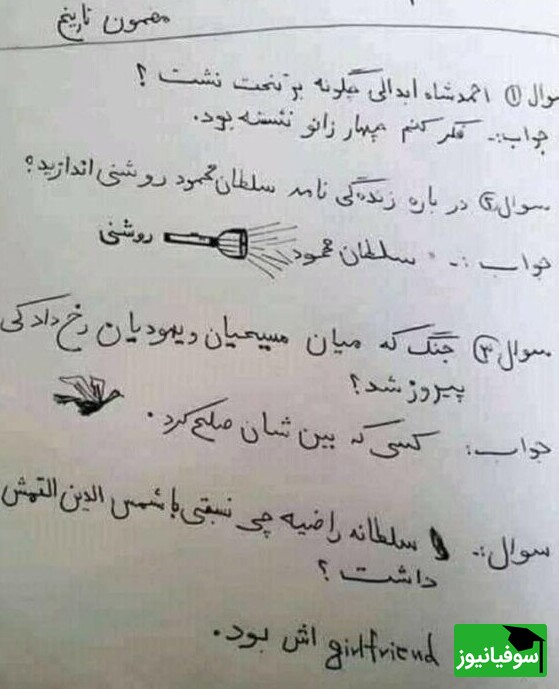 مضمون تاریخ
سوال ۱ احمدشاه ابدالی چگونه بر تخت نشت ؟
جواب:- فکر کنم چهار زانو نشسته بود.
سوال ۲ در باره زندگی نامه سلطان محمود روشنی اندازید؟
جواب :- سلطان محمود روشنی
سوال ۳ جنگ که میان مسیحیان و یهودیان رخ داد کی
پیروز شد ؟
جواب: کسی که بین شان صلح کرد .
سوال:- سلطانه راضیه چی نسبتی با شمس الدین التمش
داشت ؟
girlfriend اش بود.
سوفیانیوز